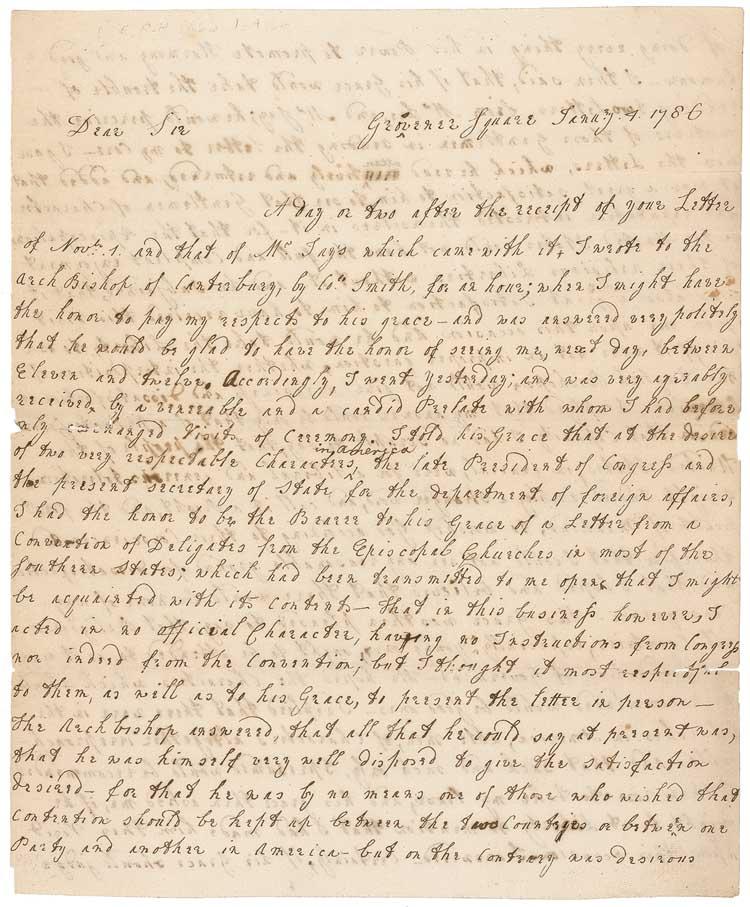 Dear Sir
Grovener Square Januy. 4. 1786
A day or two after the receipt of your Letter
of Novbr. 1. and that of Mr Jay's which came with it, I wrote to the
Arch Bishop of Canterbury, by Col. Smith, for an hour; when I might have
the honor to pay my respects to his grace – and was answered very politely
that he would be glad to have the honor of seeing me, next day, between
Eleven and twelve. Accordingly, I went yesterday; and was very agreably
received, by a venerable and a candid Prelate with whom I had before
only exchanged Visits of Ceremony. I told his Grace that at the desire
of two very respectable Characters in America, the late President of Congress and
the present secretary of State for the department of foreign affairs,
I had the honor to be the Bearer to his Grace of a Letter from a
Convention of Deligates from the Episcopal Churches in most of the
Southern States; which had been transmitted to me open, that I might
be acquainted with its Contents – that in this business however, I
acted in no official Character, having no Instructions from Congress
nor indeed from the Convention; but I thought it most respectful
to them, as well as to his Grace, to present the letter in person –
The Archbishop answered, that all that he could say at present was,
that he was himself very well disposed to give the satisfaction
desired – for that he was by no means one of those who wished that
Contention should be kept up between the two Countryes or between one
Party and another in America – but on the Contrary was desirous